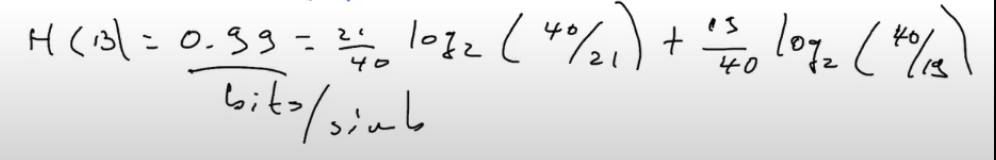 H(B) = 0.99 = 21/40 log2 (40/21) + 19/40 log2 (40/19)
bits/simb